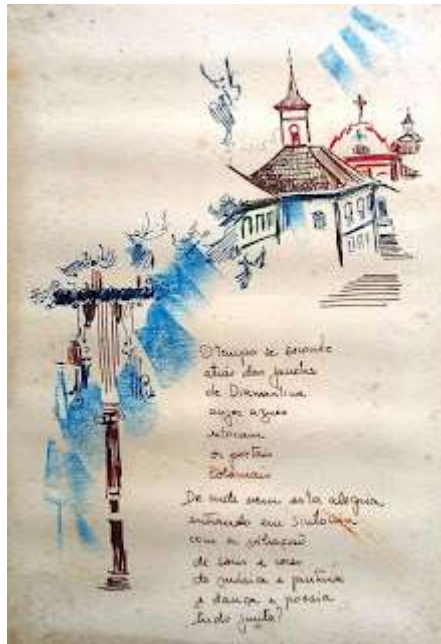 O tempo se esconde
atrás das janelas
de Diamantina
anjos azuis
retocam
os portais
coloniais
De onde vem esta alegria
entrando em sintonia
com a vibração
de sons e cores
da música e pintura
e dança e poesia
tudo junto?